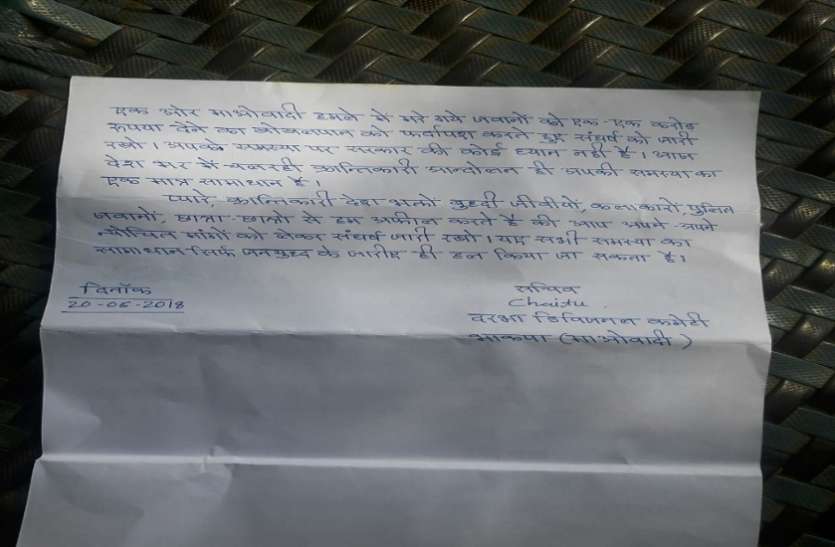 एक ओर माओवादी हमले मे मरे गये जवानों को एक-एक करोड
रूपया देने का खोखलापन को पर्दापाश करते हुए संघर्ष को जारी
रखो। आपके समस्या पर सरकार की कोई ध्यान नही है। आज
देश भर में चलरही क्रान्तिकारी आन्दोलन ही आपकी समस्या का
एक मात्र सामाधान है।
प्यारे क्रान्तिकारी देश भक्तो बुद्दी जीवीयों, कलाकारों, पुलिस
जवानों, छात्रा-छात्रो से हम अपील करते है की आप अपने-अपने
मांगों को लेकर संघर्ष जारी रखो। यह सभी समस्या का
सामाधान सिर्फ जनयुध्द के जारीए ही हल किया जा सकता है।
दिनाँक
20-06-2018
सचिव
Chaitu
दरभा डिविजनल कमेटी
भाकपा (माओवादी)